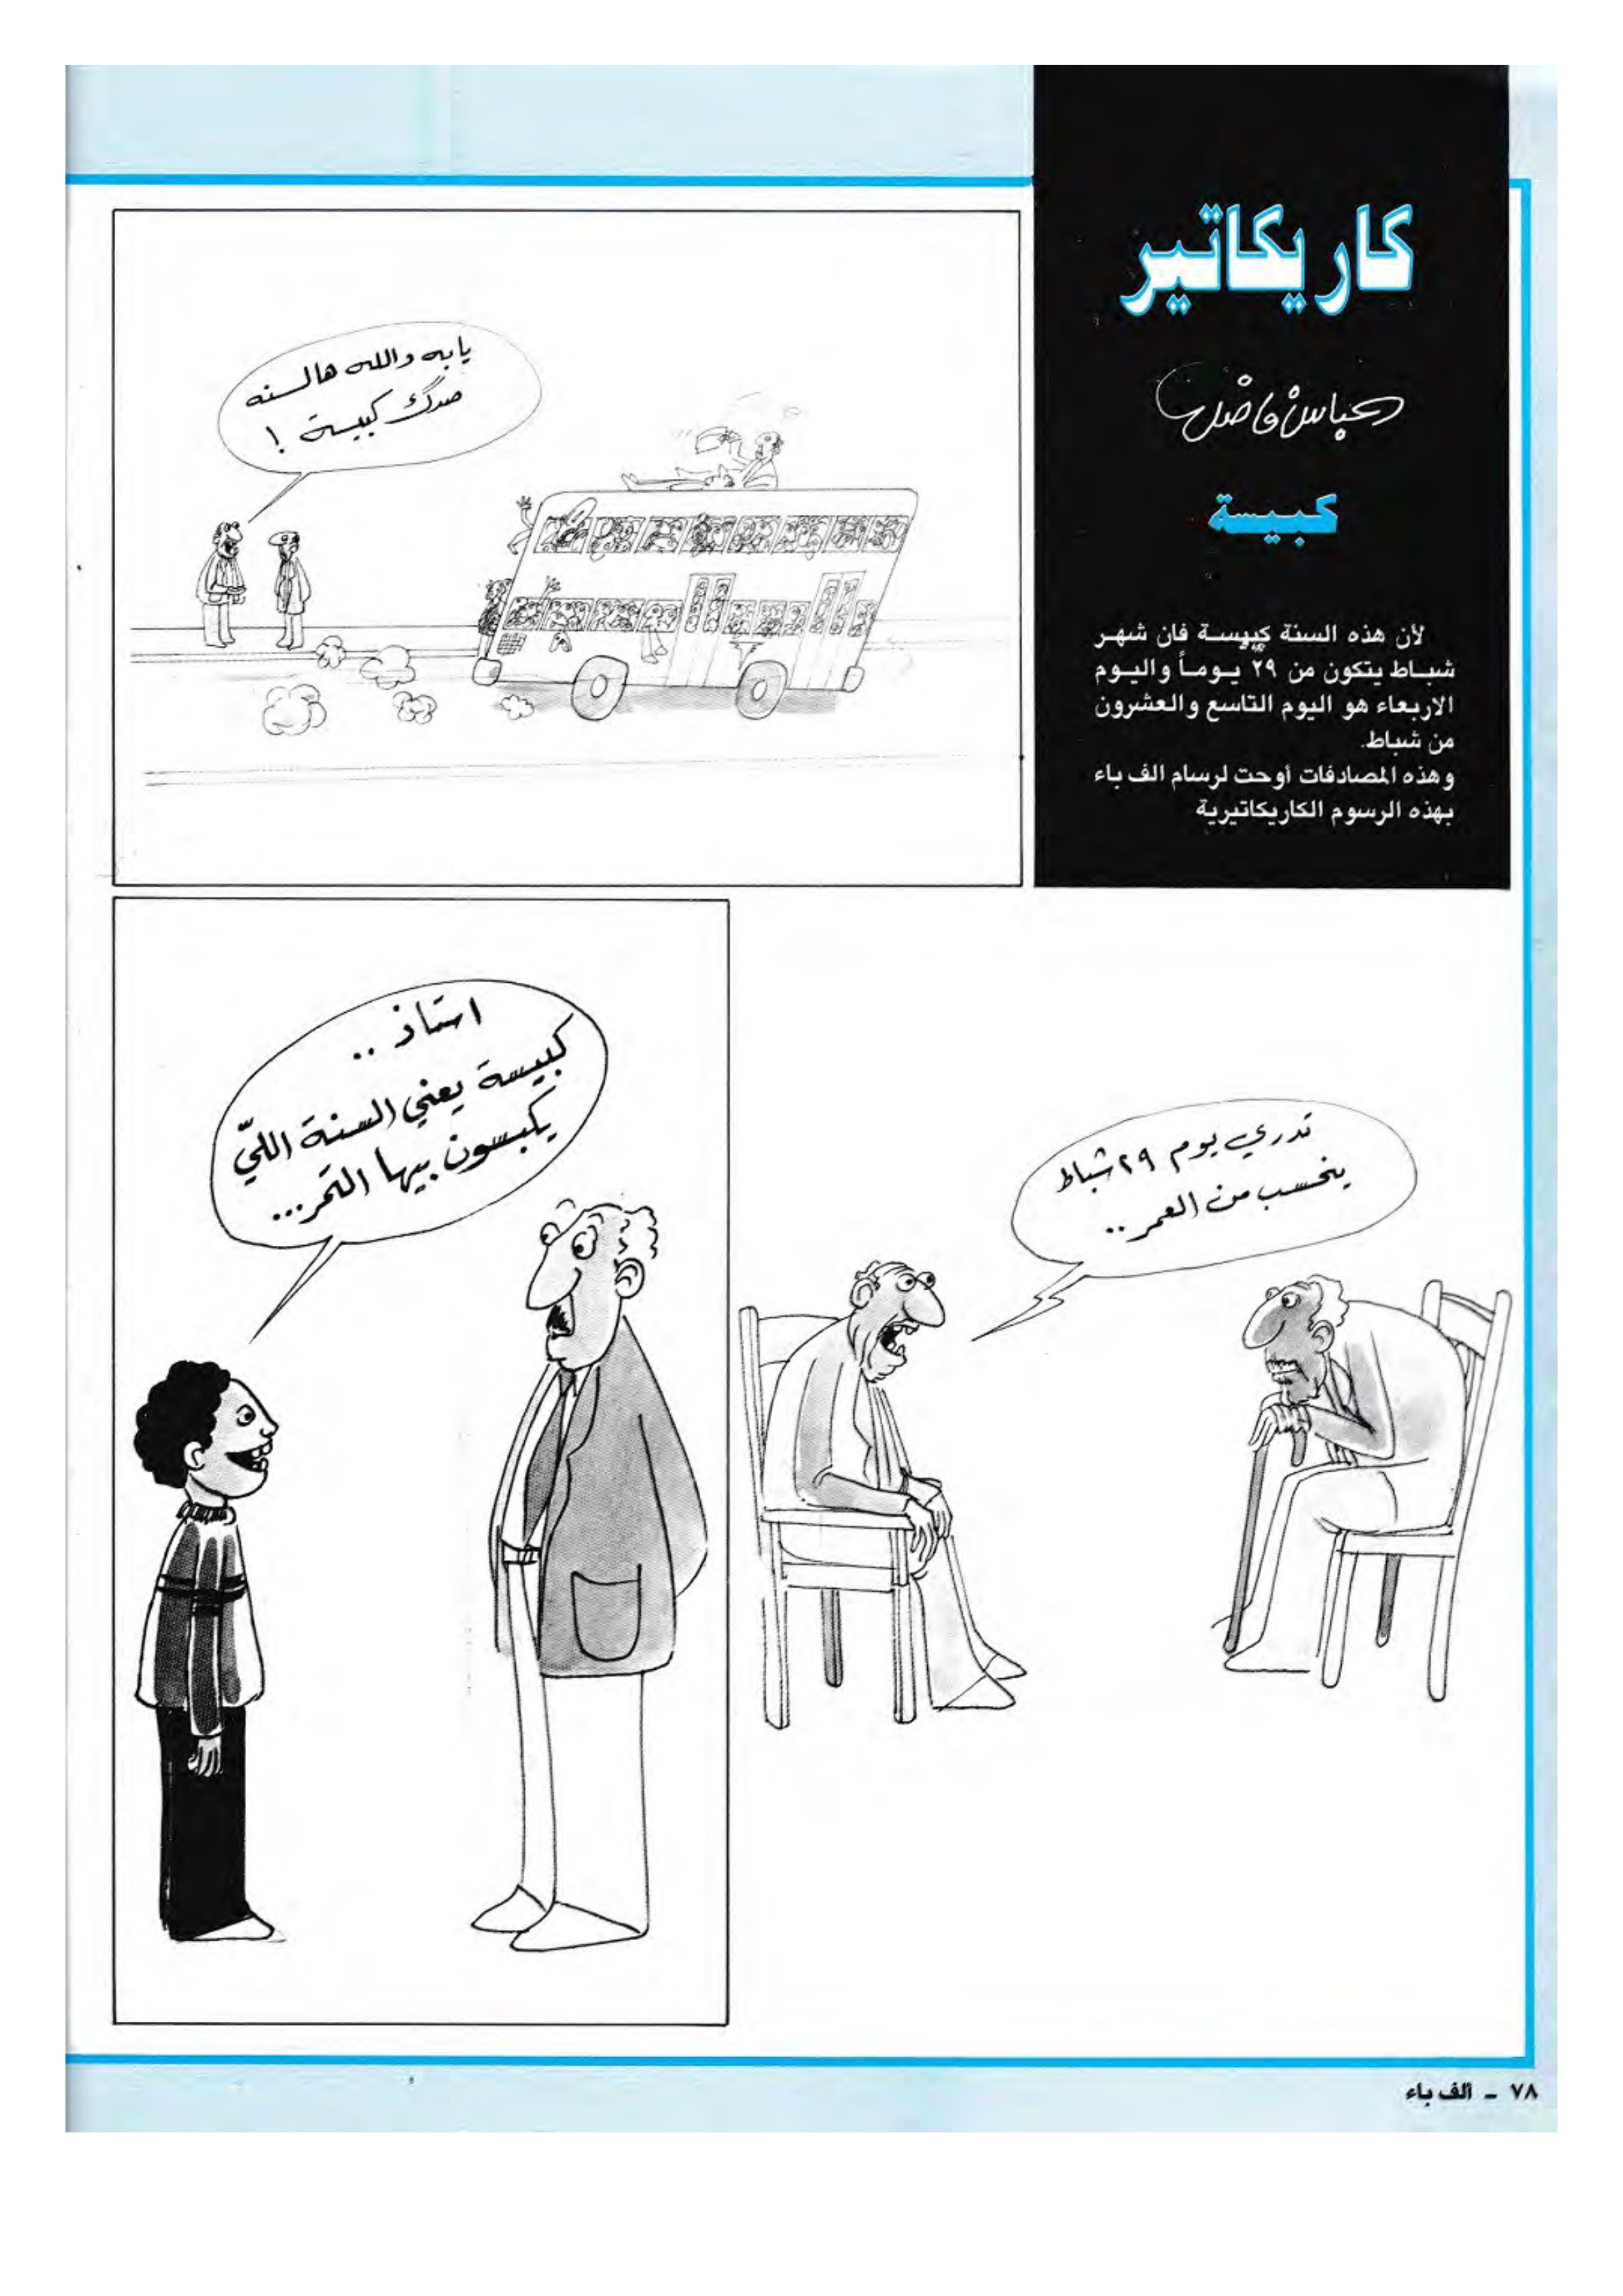 كاريكاتير
عباس فاضل
كبيسة
لأن هذه السنة كبيسة فان شهر
شباط يتكون من ٢٩ يوماً واليوم
الاربعاء هو اليوم التاسع والعشرون
من شباط.
وهذه المصادفات أوحت لرسام الف باء
بهذه الرسوم الكاريكاتيرية
يابه والله هالسنه
صدگ كبيسة !
تدري يوم ٢٩ شباط
ينحسب من العمر ..
استاذ ..
كبيسة يعني السنة اللي
يكبسون بيها التمر...
٧٨ - ألف باء